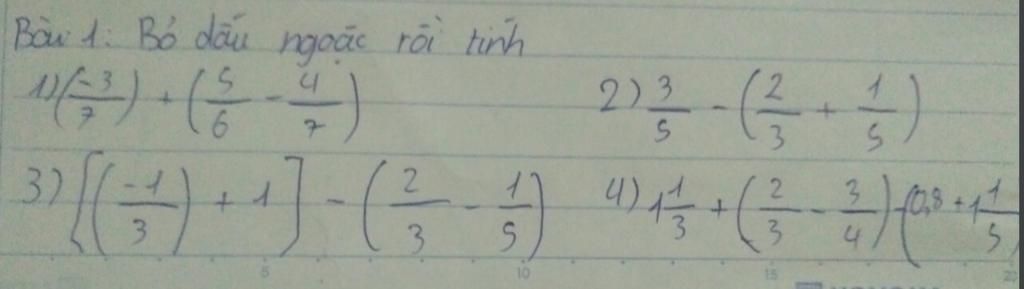 Bài 1: Bỏ dấu ngoặc rồi tính
1) (-3/7) + (5/6 - 4/7) 2) 3/5 - (2/3 + 1/5)
3) [(-1/3) + 1] - (2/3 - 1/5) 4) 1 1/3 + (2/3 - 3/4) - (0,8 + 1 1/5
5 10 15 20